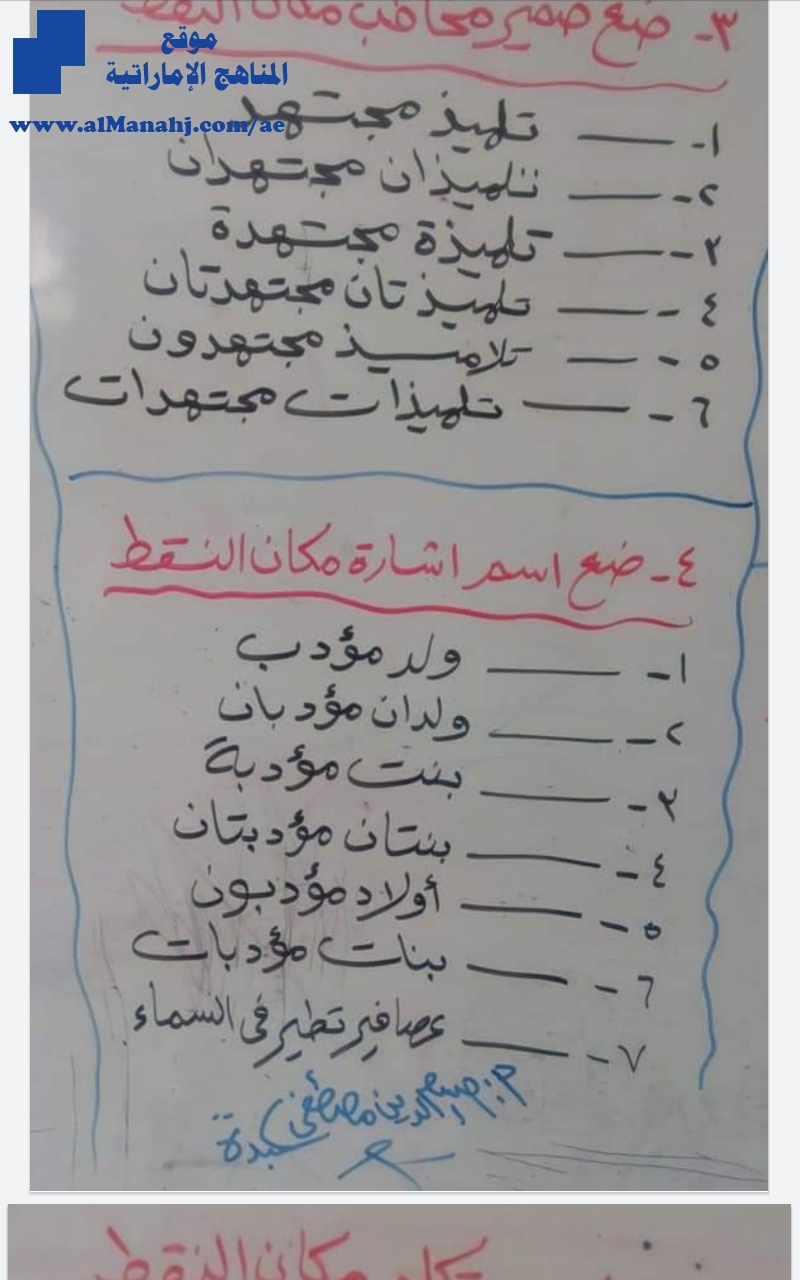 موقع
المناهج الإماراتية
www.alManahj.com/ae
٣- ضع ضمير مخاطب مكان النقط
١- ــــ تلميذ مجتهد
٢- ــــ تلميذان مجتهدان
٣- ــــ تلميذة مجتهدة
٤- ــــ تلميذتان مجتهدتان
٥- ــــ تلاميذ مجتهدون
٦- ــــ تلميذات مجتهدات
٤- ضع اسم اشارة مكان النقط
١- ــــ ولد مؤدب
٢- ــــ ولدان مؤدبان
٣- ــــ بنت مؤدبة
٤- ــــ بنتان مؤدبتان
٥- ــــ أولاد مؤدبون
٦- ــــ بنات مؤدبات
٧- ــــ عصافير تطير في السماء
مصطفى
مكان النقط